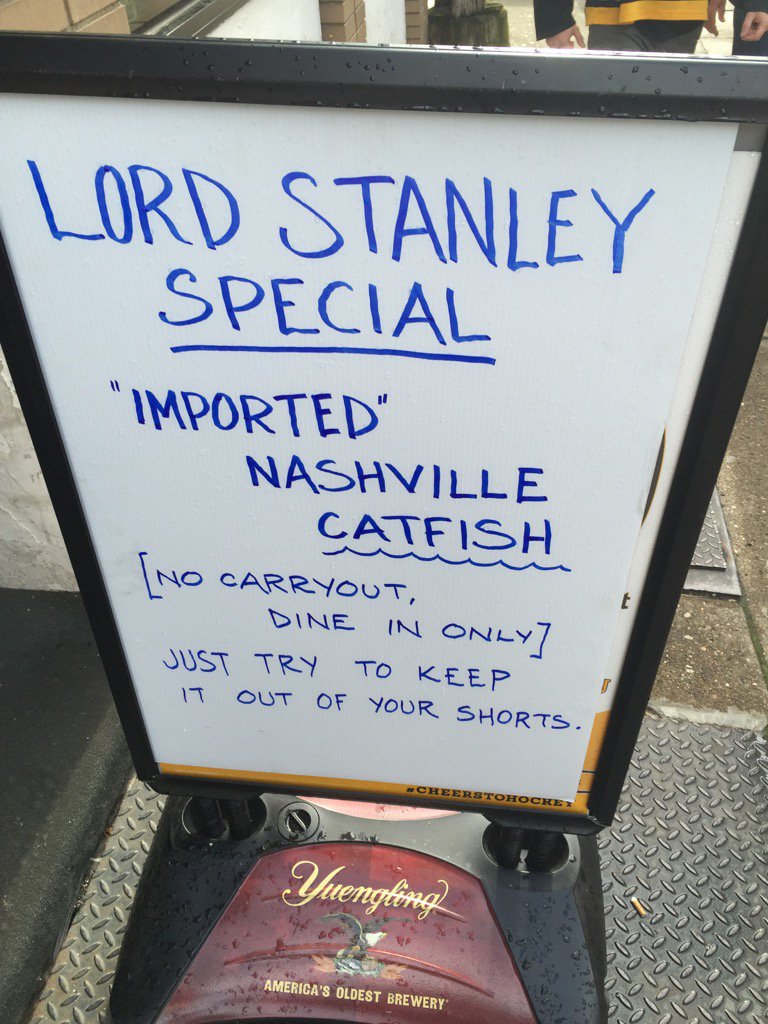 LORD STANLEY
SPECIAL
"IMPORTED"
NASHVILLE
CATFISH
[NO CARRYOUT,
DINE IN ONLY]
JUST TRY TO KEEP
IT OUT OF YOUR SHORTS.
#CHEERSTOHOCKEY
Yuengling
AMERICA'S OLDEST BREWERY